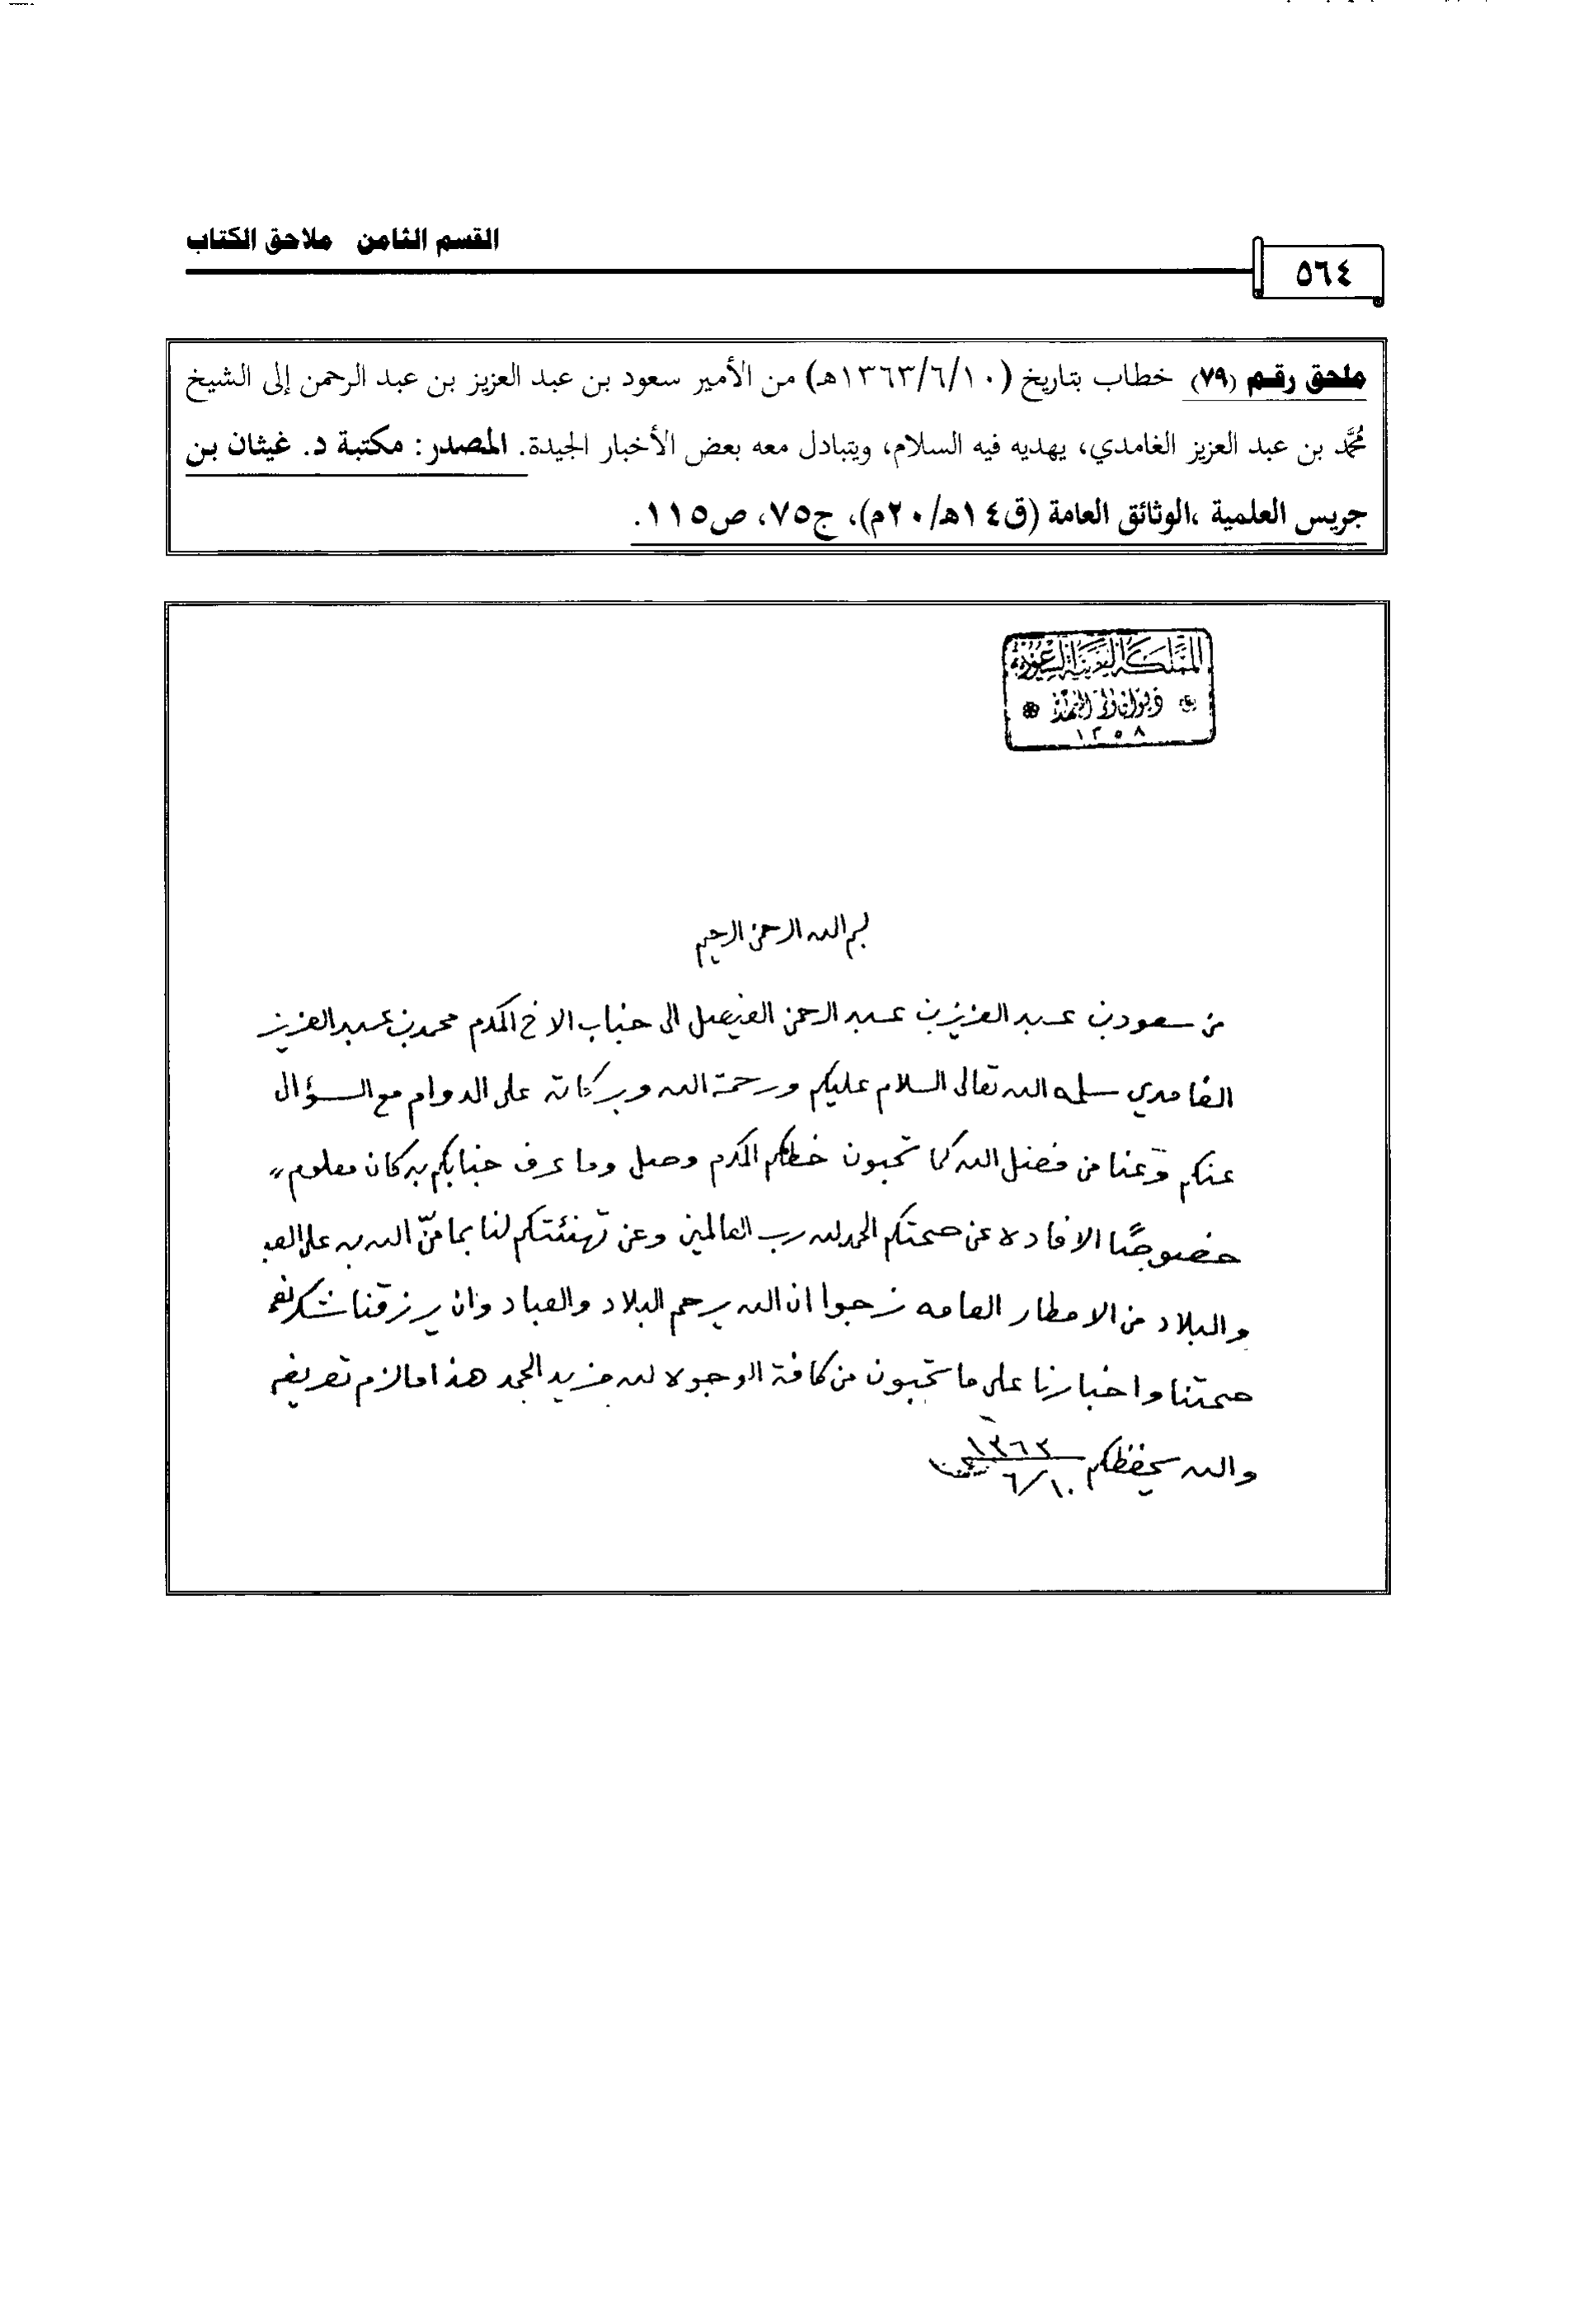 القسم الثامن ملاحق الكتاب
٥٦٤
ملحق رقم (٧٩) خطاب بتاريخ (١٣٦٣/٦/١٠هـ) من الأمير سعود بن عبد العزيز بن عبد الرحمن إلى الشيخ
مُحَمَّد بن عبد العزيز الغامدي، يهديه فيه السلام، ويتبادل معه بعض الأخبار الجيدة. المصدر: مكتبة د. غيثان بن
جريس العلمية ،الوثائق العامة (ق١٤هـ/٢٠م)، ج٧٥، ص١١٥.
المملكة العربية السعودية
ديوان ولي العهد
١٣٥٨
بسم الله الرحمن الرحيم
من سعود بن عبد العزيز بن عبد الرحمن الفيصل الى جناب الاخ المكرم محمد بن عبد العزيز
الغامدي سلمه الله تعالى السلام عليكم ورحمة الله وبركاته على الدوام مع السؤال
عنكم وعنا من فضل الله كما تحبون خطكم المكرم وصل وما عرف جنابكم به كان معلوم
خصوصًا الافاده عن صحتكم الحمد لله رب العالمين وعن تهنئتكم لنا بما منّ الله به على العبا
والبلاد من الامطار العامه نرجوا ان الله يرحم البلاد والعباد وان يرزقنا شكر نعمه
صحتنا واخبارنا على ما تحبون من كافة الوجوه لله مزيد الحمد هذا ما لزم تعريفه
والله يحفظكم ١٣٦٣
٦/١٠